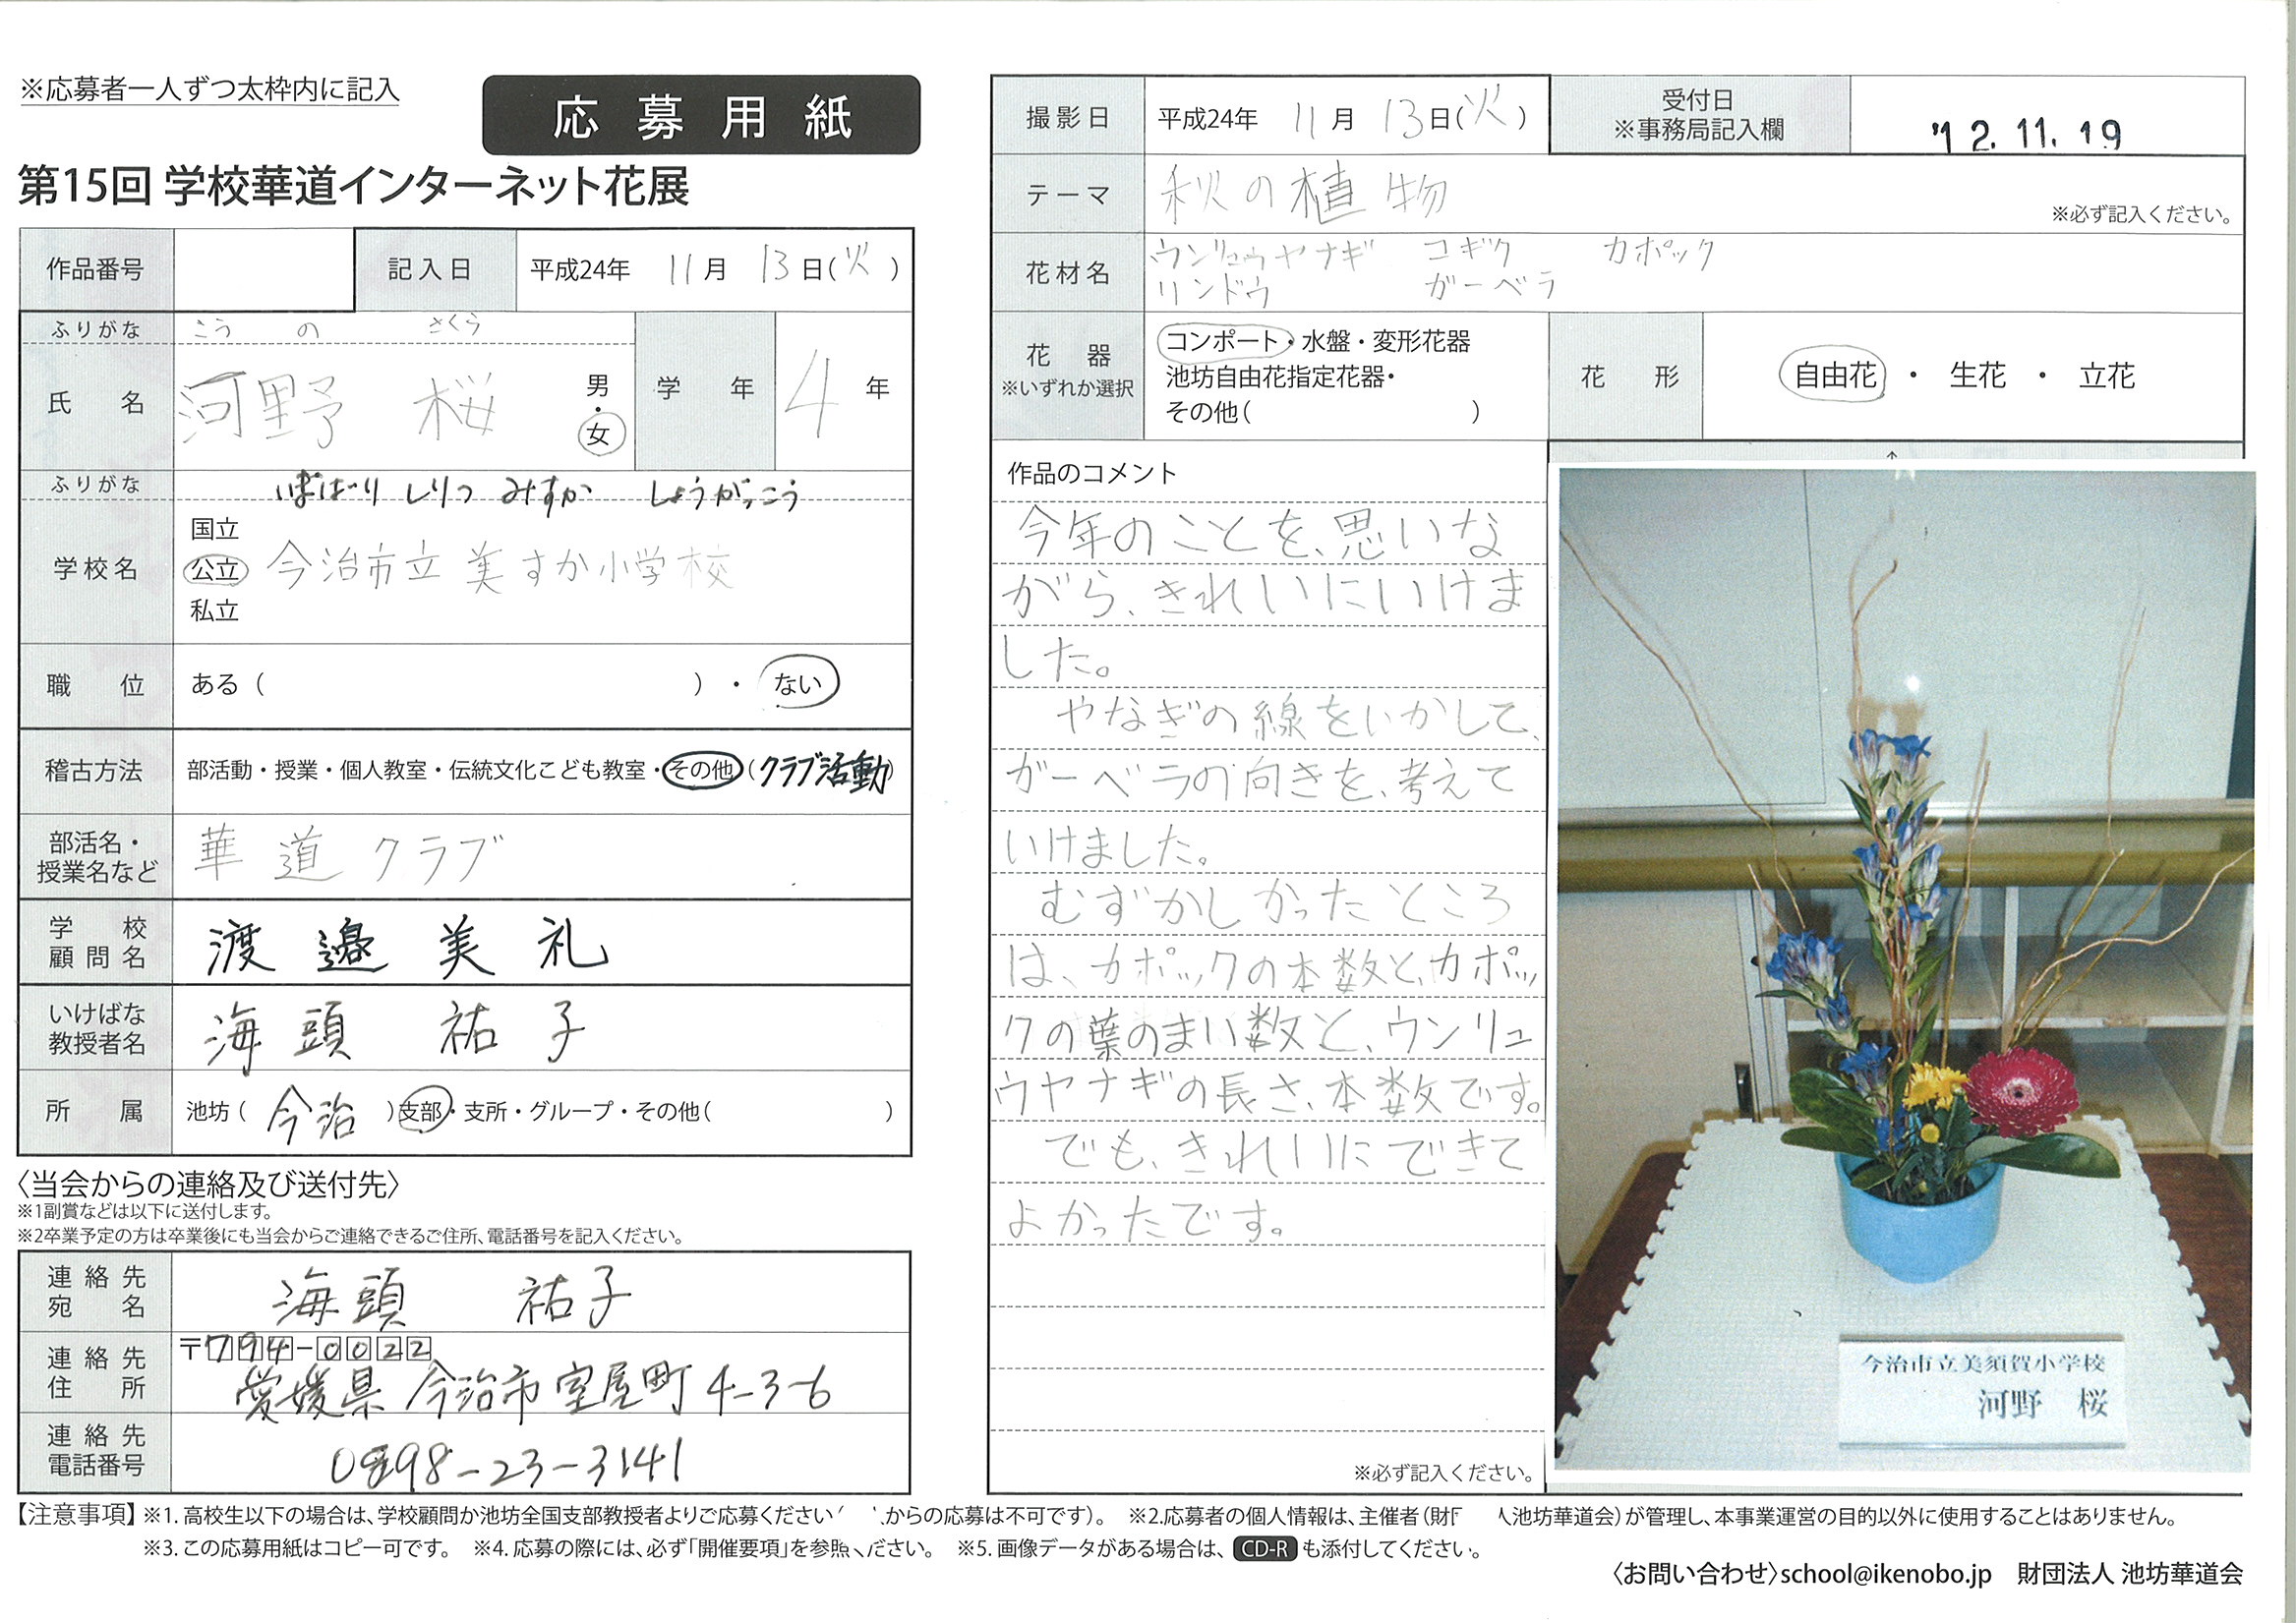 ※応募者一人ずつ太枠内に記入
応募用紙
第15回 学校華道インターネット花展
作品番号
記入日 平成24年 11月 13日(火)
ふりがな こうの さくら
氏名 河野 桜 男・女
学年 4年
ふりがな いまばり しりつ みすか しょうがっこう
学校名 国立 公立 私立 今治市立美すか小学校
職位 ある( )・ない
稽古方法 部活動・授業・個人教室・伝統文化こども教室・その他(クラブ活動)
部活名・授業名など 華道クラブ
学校顧問名 渡邉美礼
いけばな教授者名 海頭 祐子
所属 池坊(今治)支部・支所・グループ・その他( )
〈当会からの連絡及び送付先〉
※1副賞などは以下に送付します。
※2卒業予定の方は卒業後にも当会からご連絡できるご住所、電話番号を記入ください。
連絡先宛名 海頭 祐子
連絡先住所 〒794-0022
愛媛県今治市室屋町4-3-6
連絡先電話番号 0898-23-3141
撮影日 平成24年 11月 13日(火)
受付日 ※事務局記入欄 '12.11.19
テーマ 秋の植物
※必ず記入ください。
花材名 ウンリュウヤナギ コギク カポック
リンドウ ガーベラ
花器 ※いずれか選択
コンポート・水盤・変形花器
池坊自由花指定花器・
その他( )
花形 自由花・生花・立花
作品のコメント
今年のことを、思いな
がら、きれいにいけま
した。
やなぎの線をいかして、
ガーベラの向きを、考えて
いけました。
むずかしかったところ
は、カポックの本数と、カポッ
クの葉のまい数と、ウンリュ
ウヤナギの長さ、本数です。
でも、きれいにできて
よかったです。
※必ず記入ください。
今治市立美須賀小学校
河野 桜
【注意事項】※1.高校生以下の場合は、学校顧問か池坊全国支部教授者よりご応募ください からの応募は不可です)。 ※2.応募者の個人情報は、主催者(財 人池坊華道会)が管理し、本事業運営の目的以外に使用することはありません。
※3.この応募用紙はコピー可です。 ※4.応募の際には、必ず「開催要項」を参照ください。 ※5.画像データがある場合は、CD-Rも添付してください。
〈お問い合わせ〉school@ikenobo.jp 財団法人 池坊華道会